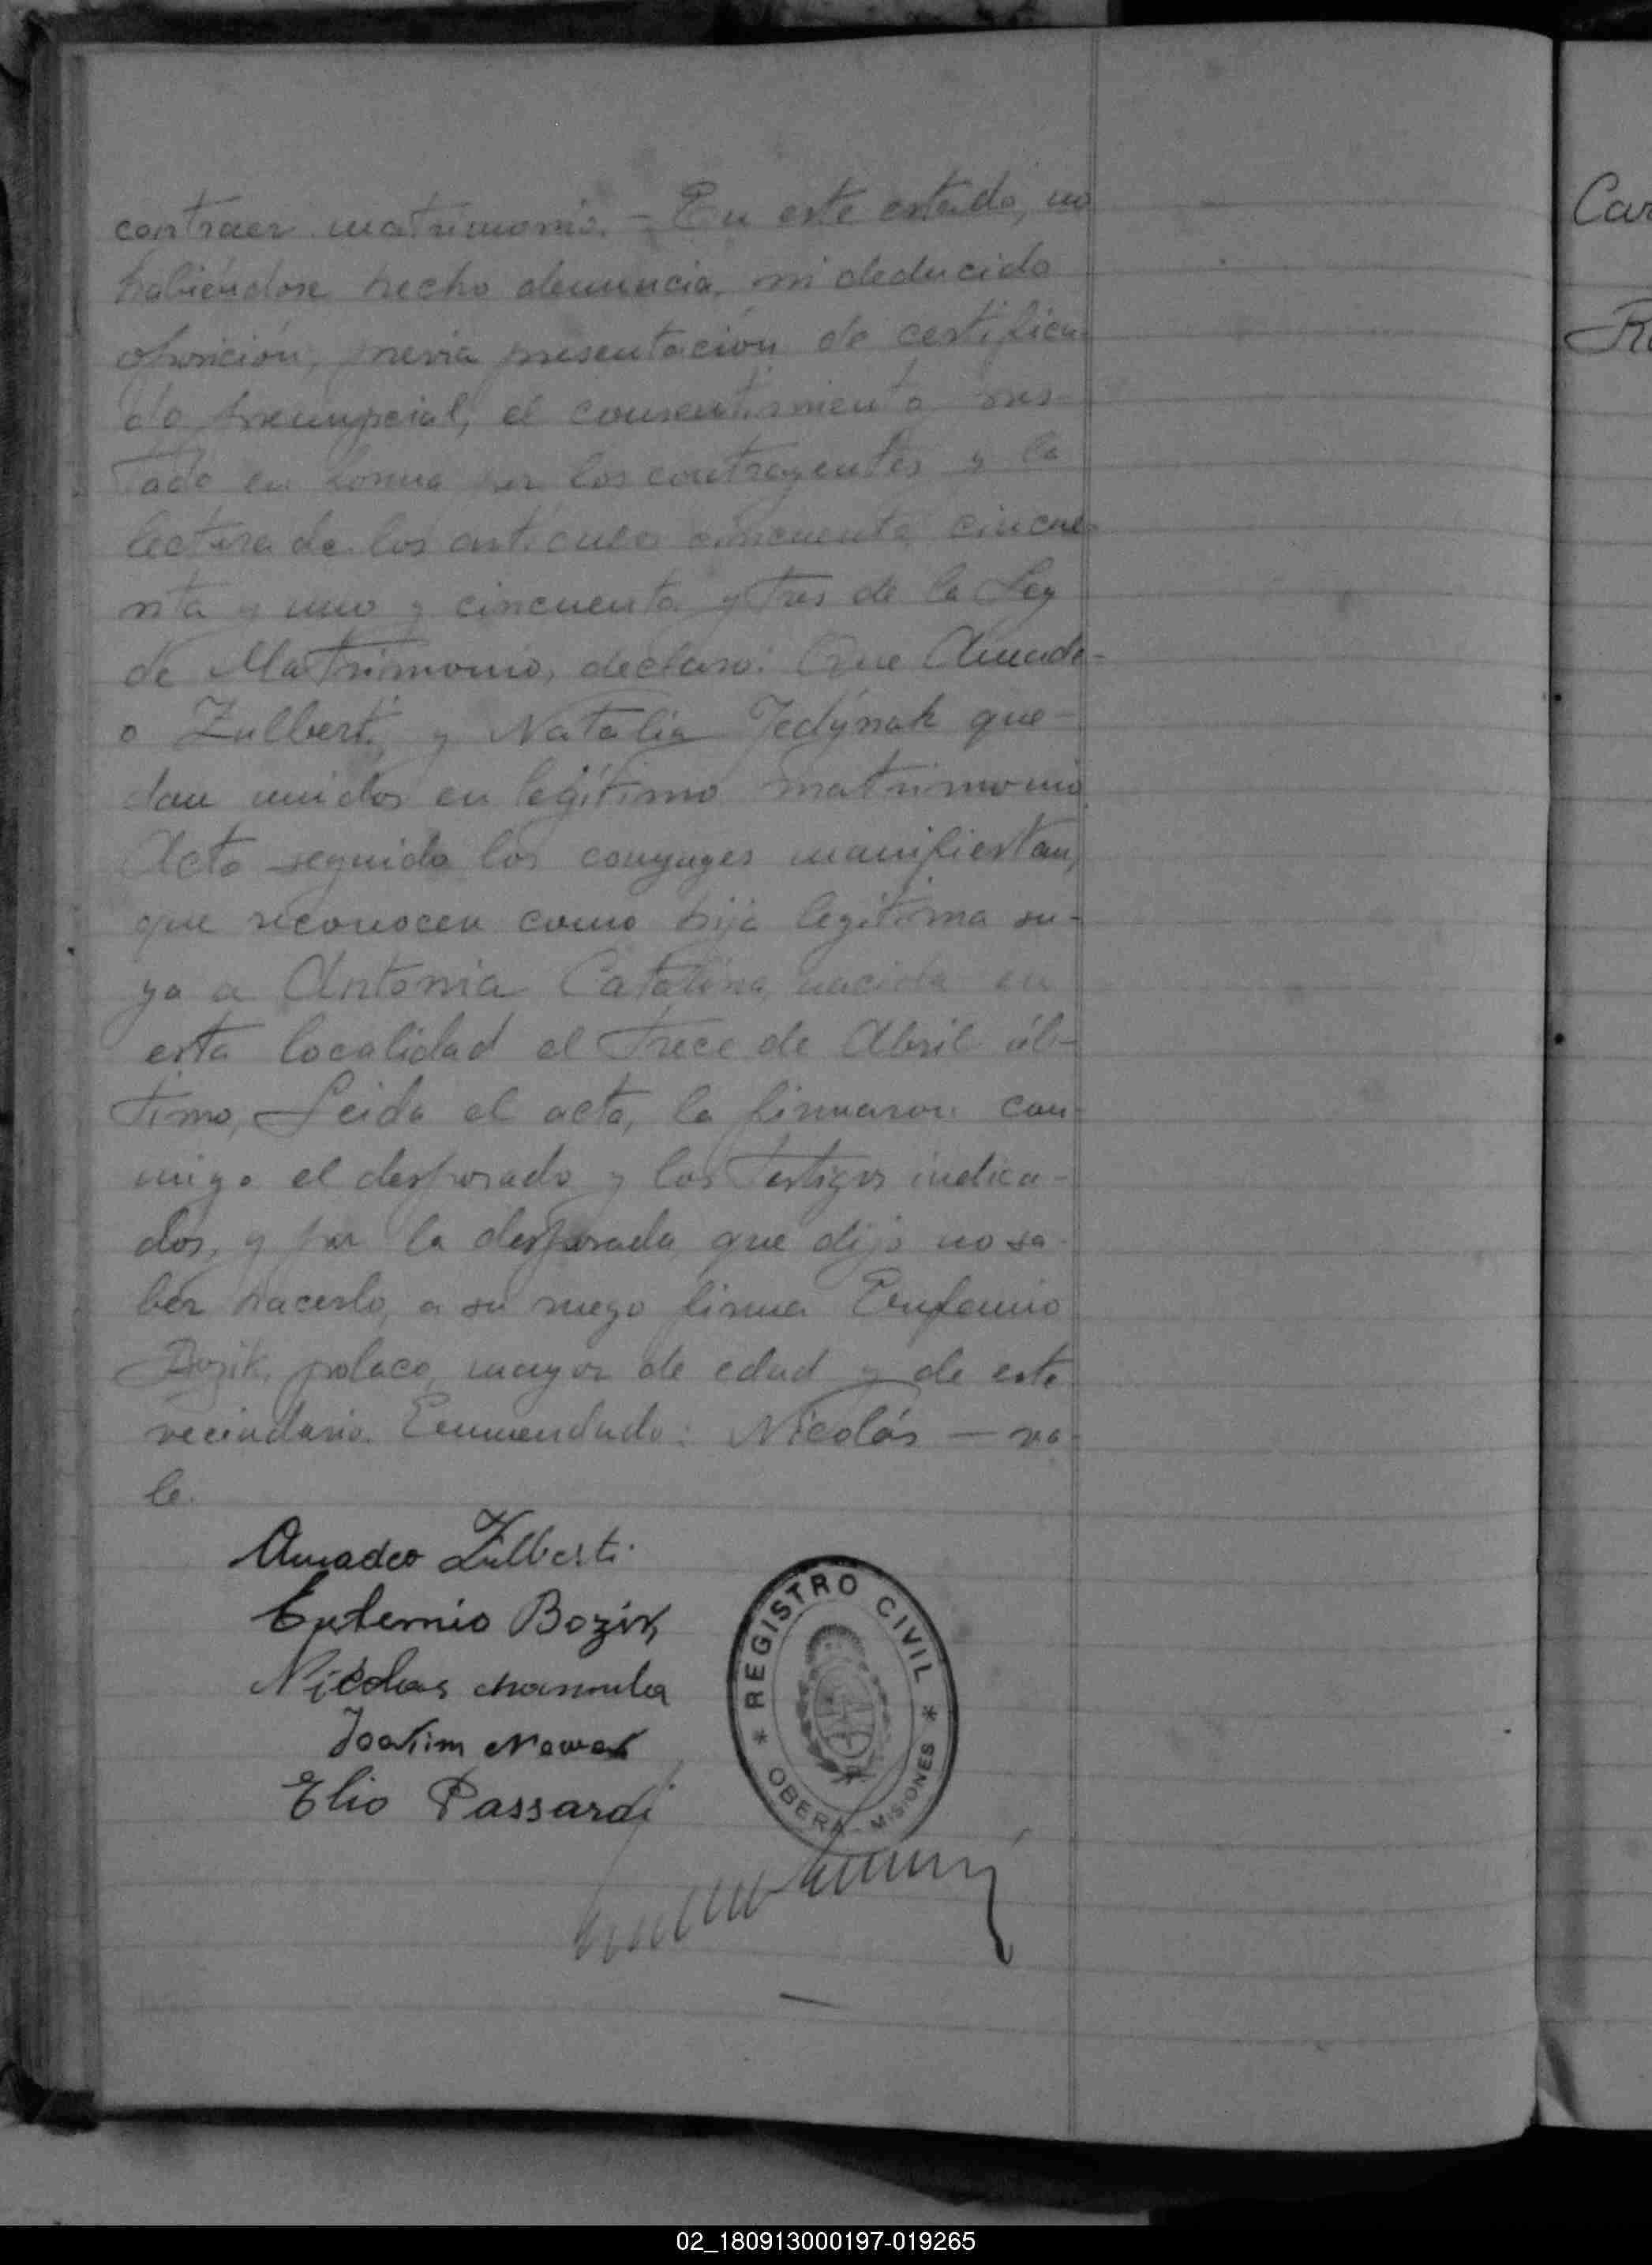 contraer matrimonio. — En este estado, no
habiéndose hecho denuncia, ni deducido
oposición, previa presentación de certifica-
do prenupcial, el consentimiento pres-
tado en forma por los contrayentes y la
lectura de los artículos cincuenta, cincue-
nta y uno y cincuenta y tres de la Ley
de Matrimonio, declaro: Que Amade-
o Zulberti, y Natalia Jedýnak que-
dan unidos en legítimo matrimonio
Acto seguido los conyuges manifiestan,
que reconocen como hija legítima su-
ya a Antonia Catalina, nacida en
esta localidad el trece de Abril úl-
timo, Leida el acta, la firmaron con-
migo el desposado y los testigos indica-
dos, y por la desposada, que dijo no sa-
ber hacerlo, a su ruego firma Eufemio
Bozik, polaco, mayor de edad y de este
vecindario. Enmendado: Nicolás — va-
le.
Amadeo Zulberti.
Eufemio Bozik
Nicolas
Joakim Nowak
Elio Passardi
* REGISTRO CIVIL *
OBERA - MISIONES
Car
R
02_180913000197-019265